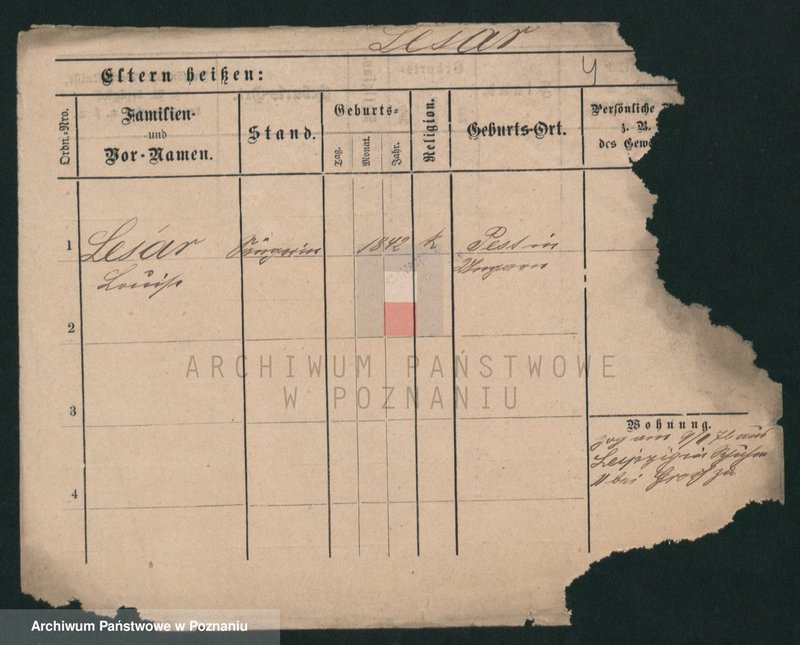 Lesár
Eltern heißen:
Ordn.-Nro.
Familien-
und
Vor-Namen.
Stand.
Geburts-
Tag.
Monat.
Jahr.
Religion.
Geburts-Ort.
Persönliche
z. B.
des Gew
1
Lesár
Louise
Sängerin
1842
k
Pest in
Ungarn
2
3
4
Wohnung.
zog am aus
Leipzig in
11 bei zu
ARCHIWUM PAŃSTWOWE
W POZNANIU
Archiwum Państwowe w Poznaniu